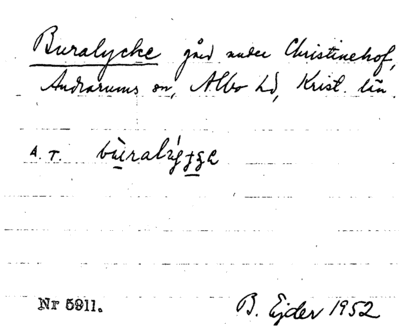 Buralycke gård under Christinehof,
Andrarums sn, Albo hd, Krist. län.
A. T.
Nr 5911.
B. Ejder 1952